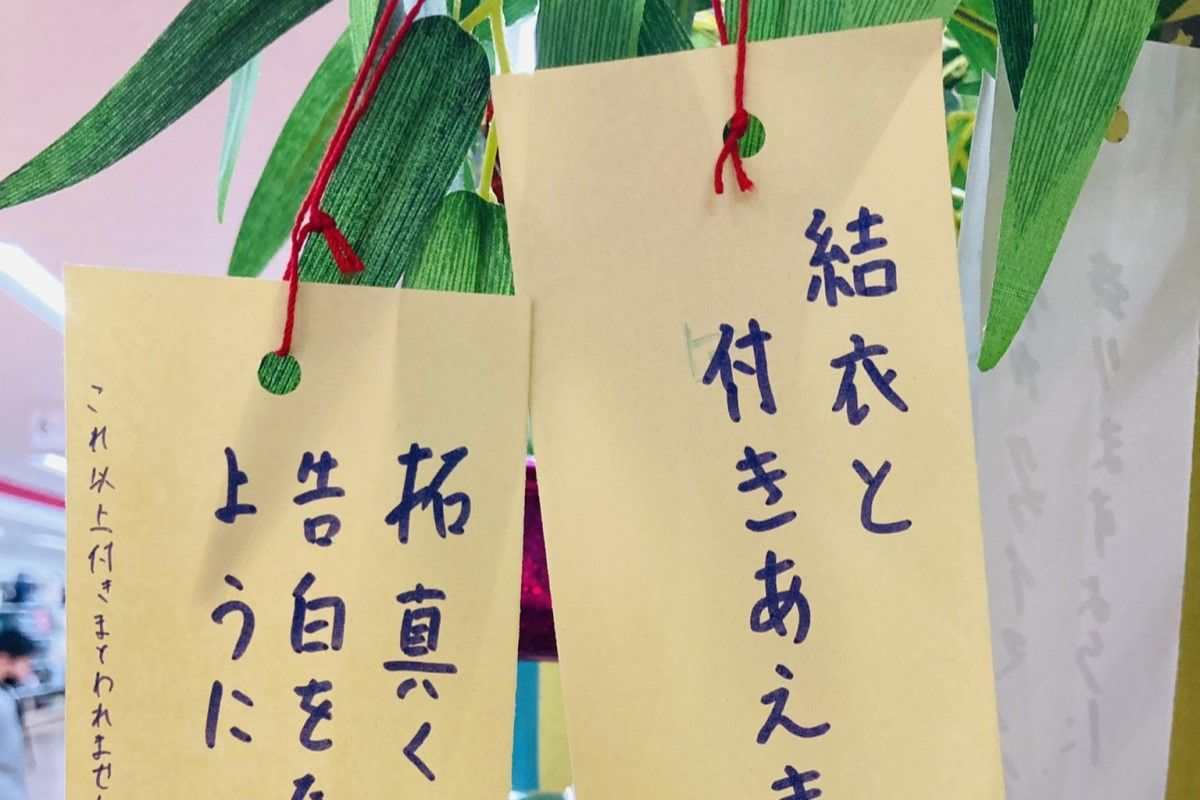 結衣と
付きあえま
拓真く
告白を
ように
これ以上付きまとわれませ